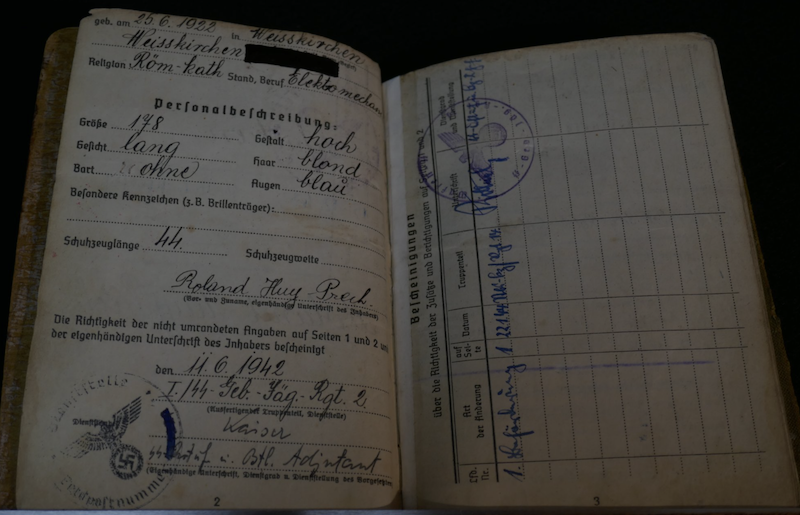 geb. am 25.6.1922 in Weisskirchen
Weisskirchen
Religion Röm-kath Stand, Beruf Elektromechan
Personalbeschreibung:
Größe 178 Gestalt hoch
Gesicht lang Haar blond
Bart ohne Augen blau
Besondere Kennzeichen (z.B. Brillenträger):
Schuhzeuglänge 44. Schuhzeugweite
Roland Huy
(Vor- und Zuname, eigenhändige Unterschrift des Inhabers)
Die Richtigkeit der nicht umrandeten Angaben auf Seiten 1 und 2 und
der eigenhändigen Unterschrift des Inhabers bescheinigt
den 11.6.1942
I./SS-Geb.-Jäg.-Rgt. 2.
(Ausfertigender Truppenteil, Dienststelle)
Kaiser
u. Btl. Adjutant
(Eigenhändige Unterschrift, Dienstgrad u. Dienststellung des Vorgesetzten)
Dienstsiegel
Feldpostnummer
2
Bescheinigungen
über die Richtigkeit der Zusätze und Berichtigungen auf Seiten 1 und 2
Lfd. Nr.
Art der Änderung
auf Seite
Datum
Truppenteil
Dienstgrad
1. Beförderung 1.
3